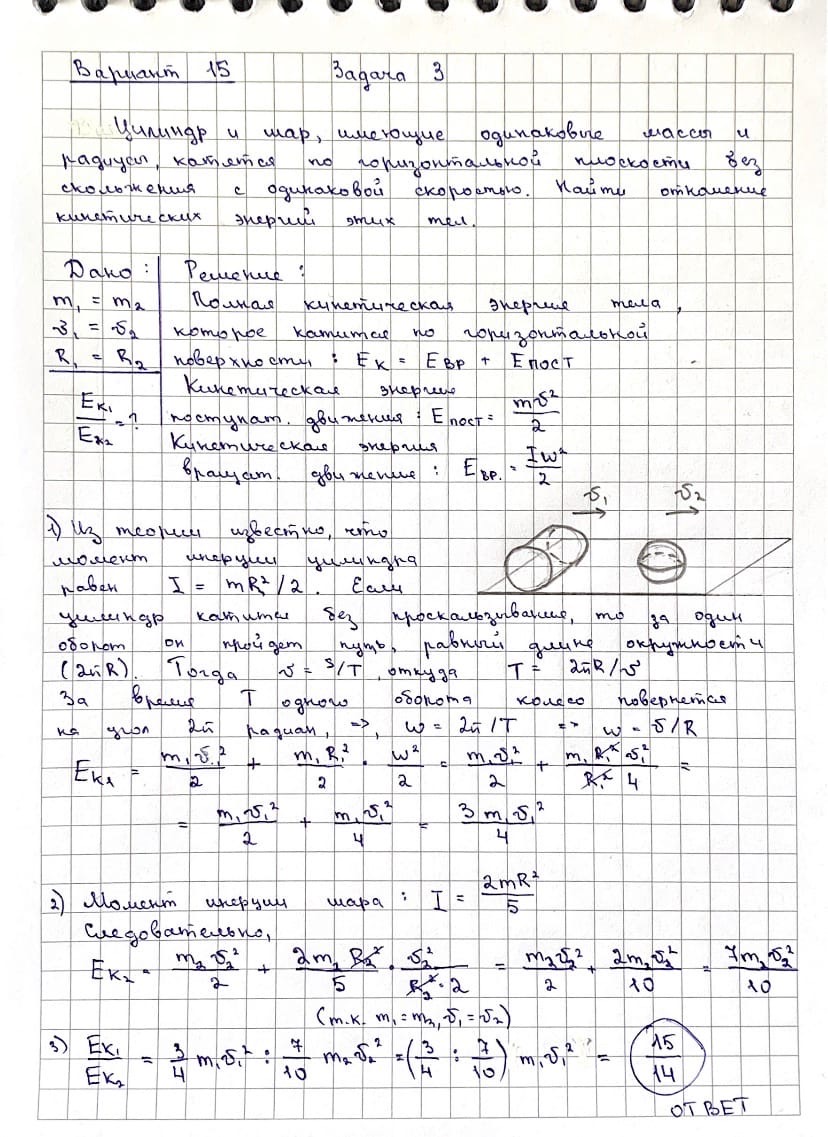 Вариант 15 Задача 3
Цилиндр и шар, имеющие одинаковые массы и
радиусы, катятся по горизонтальной плоскости без
скольжения с одинаковой скоростью. Найти отношение
кинетических энергий этих тел.
Дано: Решение:
m₁ = m₂ Полная кинетическая энергия тела,
υ₁ = υ₂ которое катится по горизонтальной
R₁ = R₂ поверхности: Eк = Eвр + Eпост
Кинетическая энергия
Eк₁/Eк₂ = ? поступат. движения: Eпост = mυ²/2
Кинетическая энергия
вращат. движение: Eвр. = Iω²/2
υ₁ υ₂
1) Из теории известно, что
момент инерции цилиндра
равен I = mR²/2. Если
цилиндр катится без проскальзывания, то за один
оборот он пройдет путь, равный длине окружности
(2πR). Тогда υ = S/T, откуда T = 2πR/υ
За время T одного оборота колесо повернется
на угол 2π радиан, =>, ω = 2π/T => ω = υ/R
Eк₁ = m₁υ₁²/2 + m₁R₁²/2 · ω²/2 = m₁υ₁²/2 + m₁R₁²υ₁²/R₁²4 =
= m₁υ₁²/2 + m₁υ₁²/4 = 3m₁υ₁²/4
2) Момент инерции шара: I = 2mR²/5
Следовательно,
Eк₂ = m₂υ₂²/2 + 2m₂R₂²/5 · υ₂²/R₂²·2 = m₂υ₂²/2 + 2m₂υ₂²/10 = 7m₂υ₂²/10
(т.к. m₁=m₂, υ₁=υ₂)
3) Eк₁/Eк₂ = 3/4 m₁υ₁² : 7/10 m₂υ₂² = (3/4 : 7/10) m₁υ₁² = 15/14
ОТВЕТ